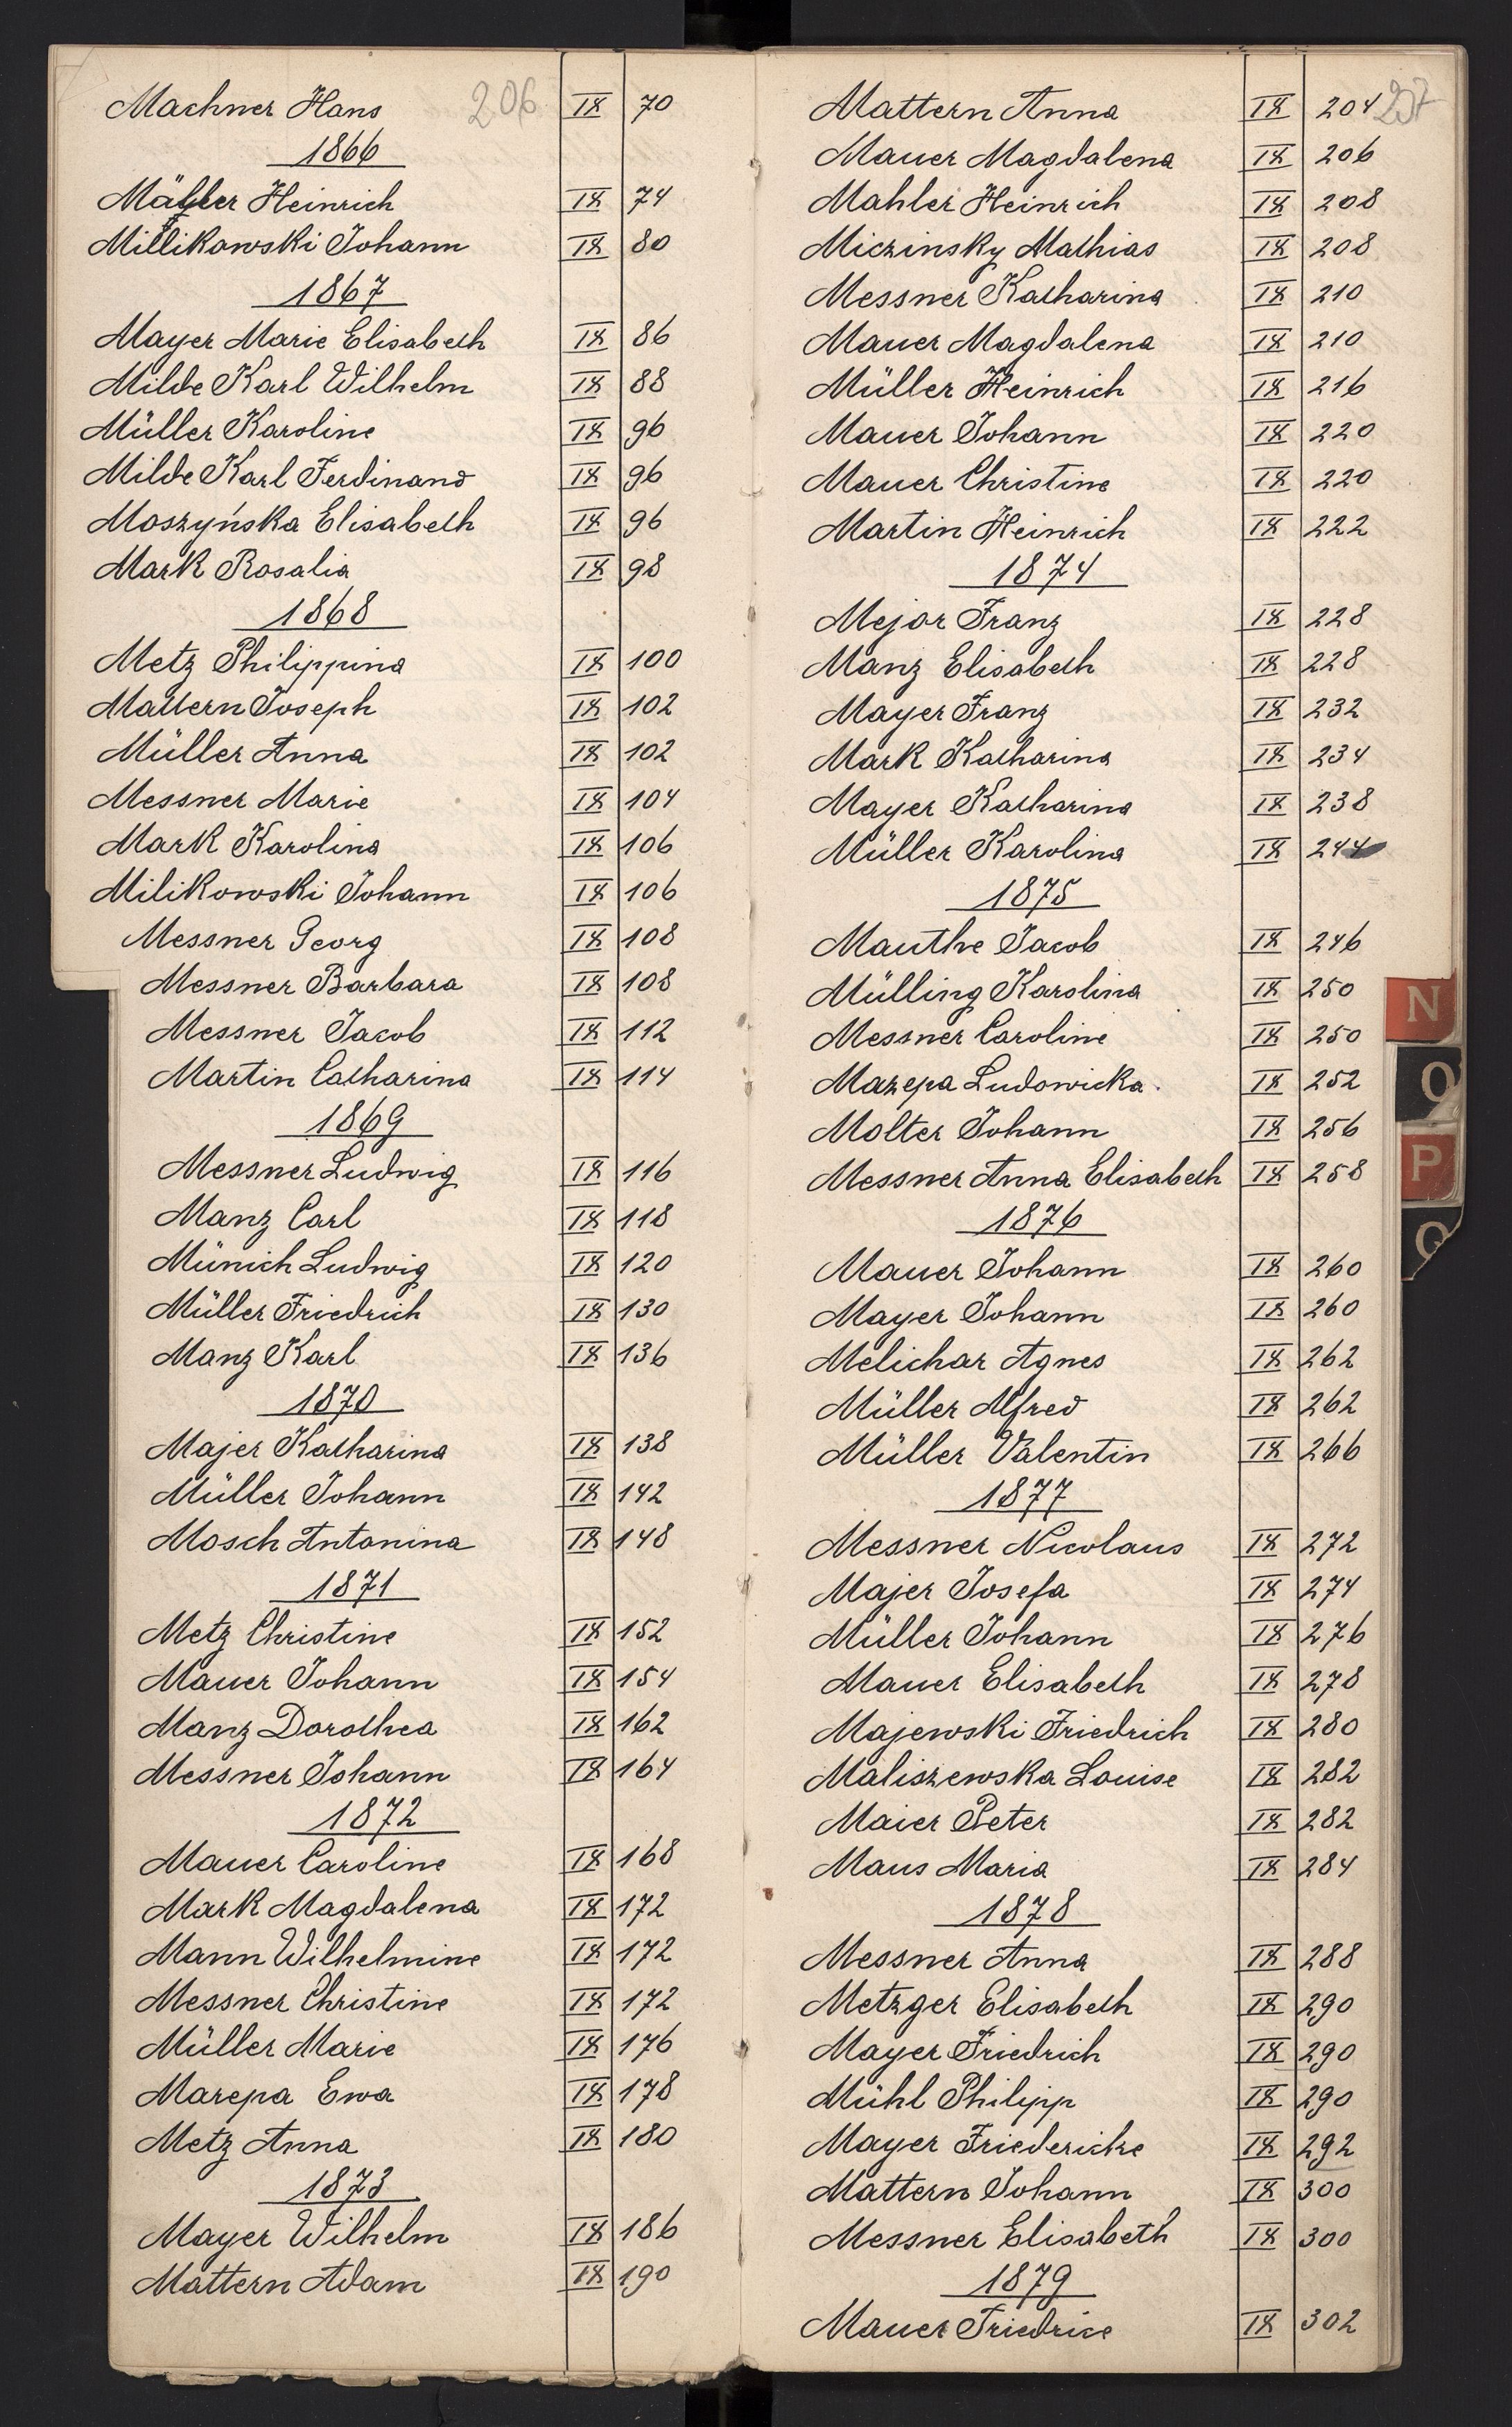 206
Machner Hans IX 70
1866
Heinrich IX 74
Millikowski Johann IX 80
1867
Mayer Marie Elisabeth IX 86
Milde Karl Wilhelm IX 88
Müller Karoline IX 96
Milde Karl Ferdinand IX 96
Moszyńska Elisabeth IX 96
Mark Rosalia IX 98
1868
Metz Philippina IX 100
Mattern Joseph IX 102
Müller Anna IX 102
Messner Marie IX 104
Mark Karolina IX 106
Milikowski Johann IX 106
Messner Georg IX 108
Messner Barbara IX 108
Messner Jacob IX 112
Martin Catharina IX 114
1869
Messner Ludwig IX 116
Manz Carl IX 118
Münich Ludwig IX 120
Müller Friedrich IX 130
Manz Karl IX 136
1870
Majer Katharina IX 138
Müller Johann IX 142
Mosch Antonina IX 148
1871
Metz Christine IX 152
Mauer Johann IX 154
Manz Dorothea IX 162
Messner Johann IX 164
1872
Mauer Caroline IX 168
Mark Magdalena IX 172
Mann Wilhelmine IX 172
Messner Christine IX 172
Müller Marie IX 176
Marepa Ewa IX 178
Metz Anna IX 180
1873
Mayer Wilhelm IX 186
Mattern Adam IX 190
207
Mattern Anna IX 204
Mauer Magdalena IX 206
Mahler Heinrich IX 208
Miczinsky Mathias IX 208
Messner Katharina IX 210
Mauer Magdalena IX 210
Müller Heinrich IX 216
Mauer Johann IX 220
Mauer Christine IX 220
Martin Heinrich IX 222
1874
Mejor Franz IX 228
Manz Elisabeth IX 228
Mayer Franz IX 232
Mark Katharina IX 234
Mayer Katharina IX 238
Müller Karolina IX 244
1875
Mauthe Jacob IX 246
Mülling Karolina IX 250
Messner Caroline IX 250
Mazepa Ludowicka IX 252
Molter Johann IX 256
Messner Anna Elisabeth IX 258
1876
Mauer Johann IX 260
Mayer Johann IX 260
Melichar Agnes IX 262
Müller Alfred IX 262
Müller Valentin IX 266
1877
Messner Nicolaus IX 272
Majer Josefa IX 274
Müller Johann IX 276
Mauer Elisabeth IX 278
Majewski Friedrich IX 280
Maliszewska Louise IX 282
Maier Peter IX 282
Maus Maria IX 284
1878
Messner Anna IX 288
Metzger Elisabeth IX 290
Mayer Friedrich IX 290
Mühl Philipp IX 290
Mayer Friedericke IX 292
Mattern Johann IX 300
Messner Elisabeth IX 300
1879
Mauer Friedrice IX 302
N
O
P
Q